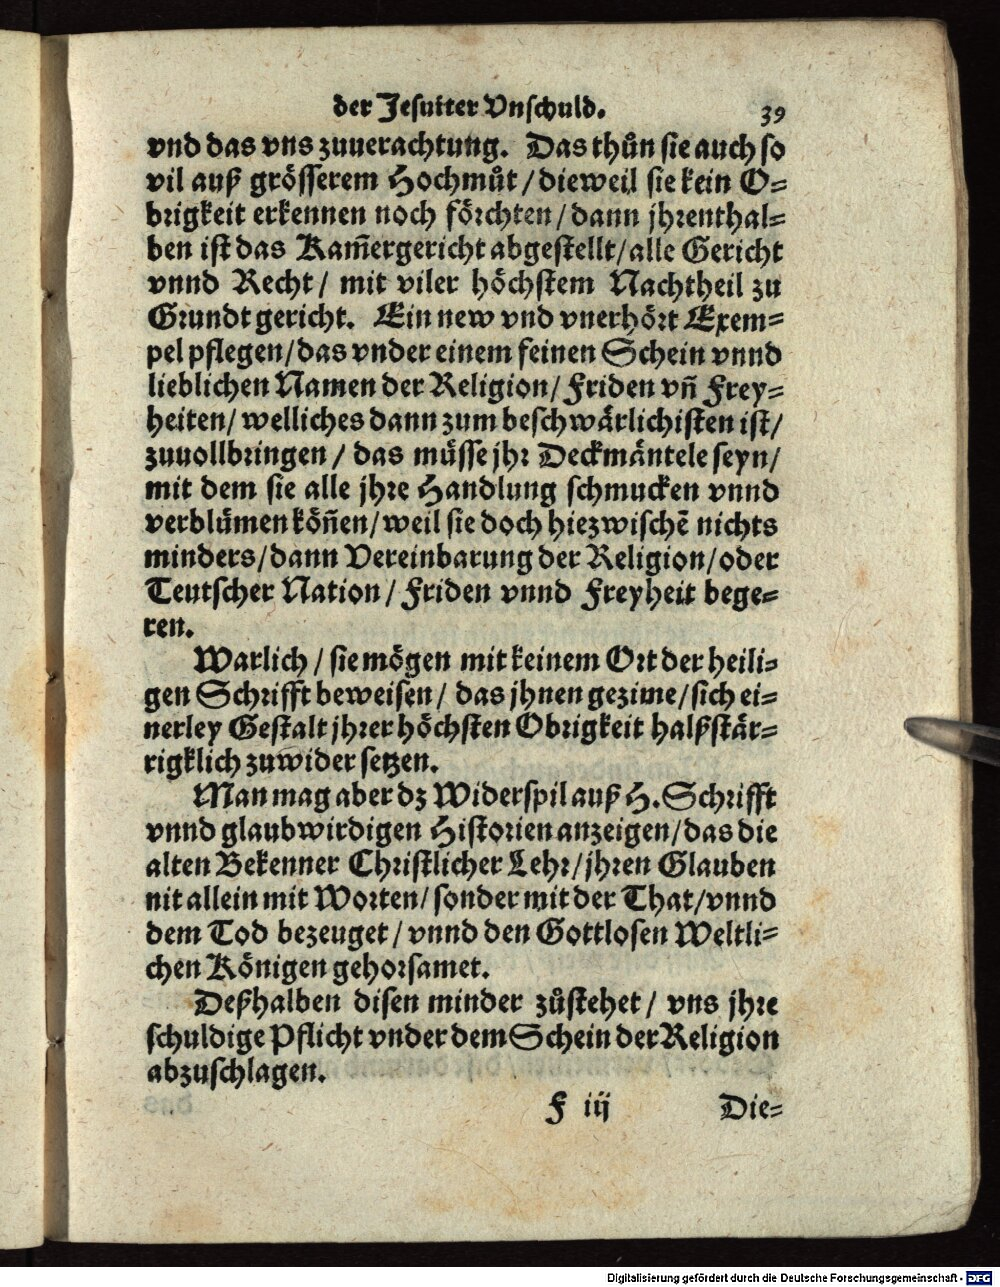 der Jesuiter Vnschuld. 39
vnd das vns zuuerachtung. Das thůn sie auch so
vil auß grösserem Hochmůt / dieweil sie kein O=
brigkeit erkennen noch förchten / dann jhrenthal=
ben ist das Kam̃ergericht abgestellt / alle Gericht
vnnd Recht / mit viler höchstem Nachtheil zu
Grundt gericht. Ein new vnd vnerhört Exem=
pel pflegen / das vnder einem feinen Schein vnnd
lieblichen Namen der Religion / Friden vñ Frey=
heiten / welliches dann zum beschwärlichisten ist /
zuuollbringen / das müsse jhr Deckmäntele seyn /
mit dem sie alle jhre Handlung schmucken vnnd
verblümen köñen / weil sie doch hiezwischẽ nichts
minders / dann Vereinbarung der Religion / oder
Teutscher Nation / Friden vnnd Freyheit bege=
ren.
Warlich / sie mögen mit keinem Ort der heili=
gen Schrifft beweisen / das jhnen gezime / sich ei=
nerley Gestalt jhrer höchsten Obrigkeit halßstär=
rigklich zuwider setzen.
Man mag aber dz Widerspil auß H. Schrifft
vnnd glaubwirdigen Historien anzeigen / das die
alten Bekenner Christlicher Lehr / jhren Glauben
nit allein mit Worten / sonder mit der That / vnnd
dem Tod bezeuget / vnnd den Gottlosen Weltli=
chen Königen gehorsamet.
Deßhalben disen minder zůstehet / vns jhre
schuldige Pflicht vnder dem Schein der Religion
abzuschlagen.
F iij Die=
Digitalisierung gefördert durch die Deutsche Forschungsgemeinschaft - DFG